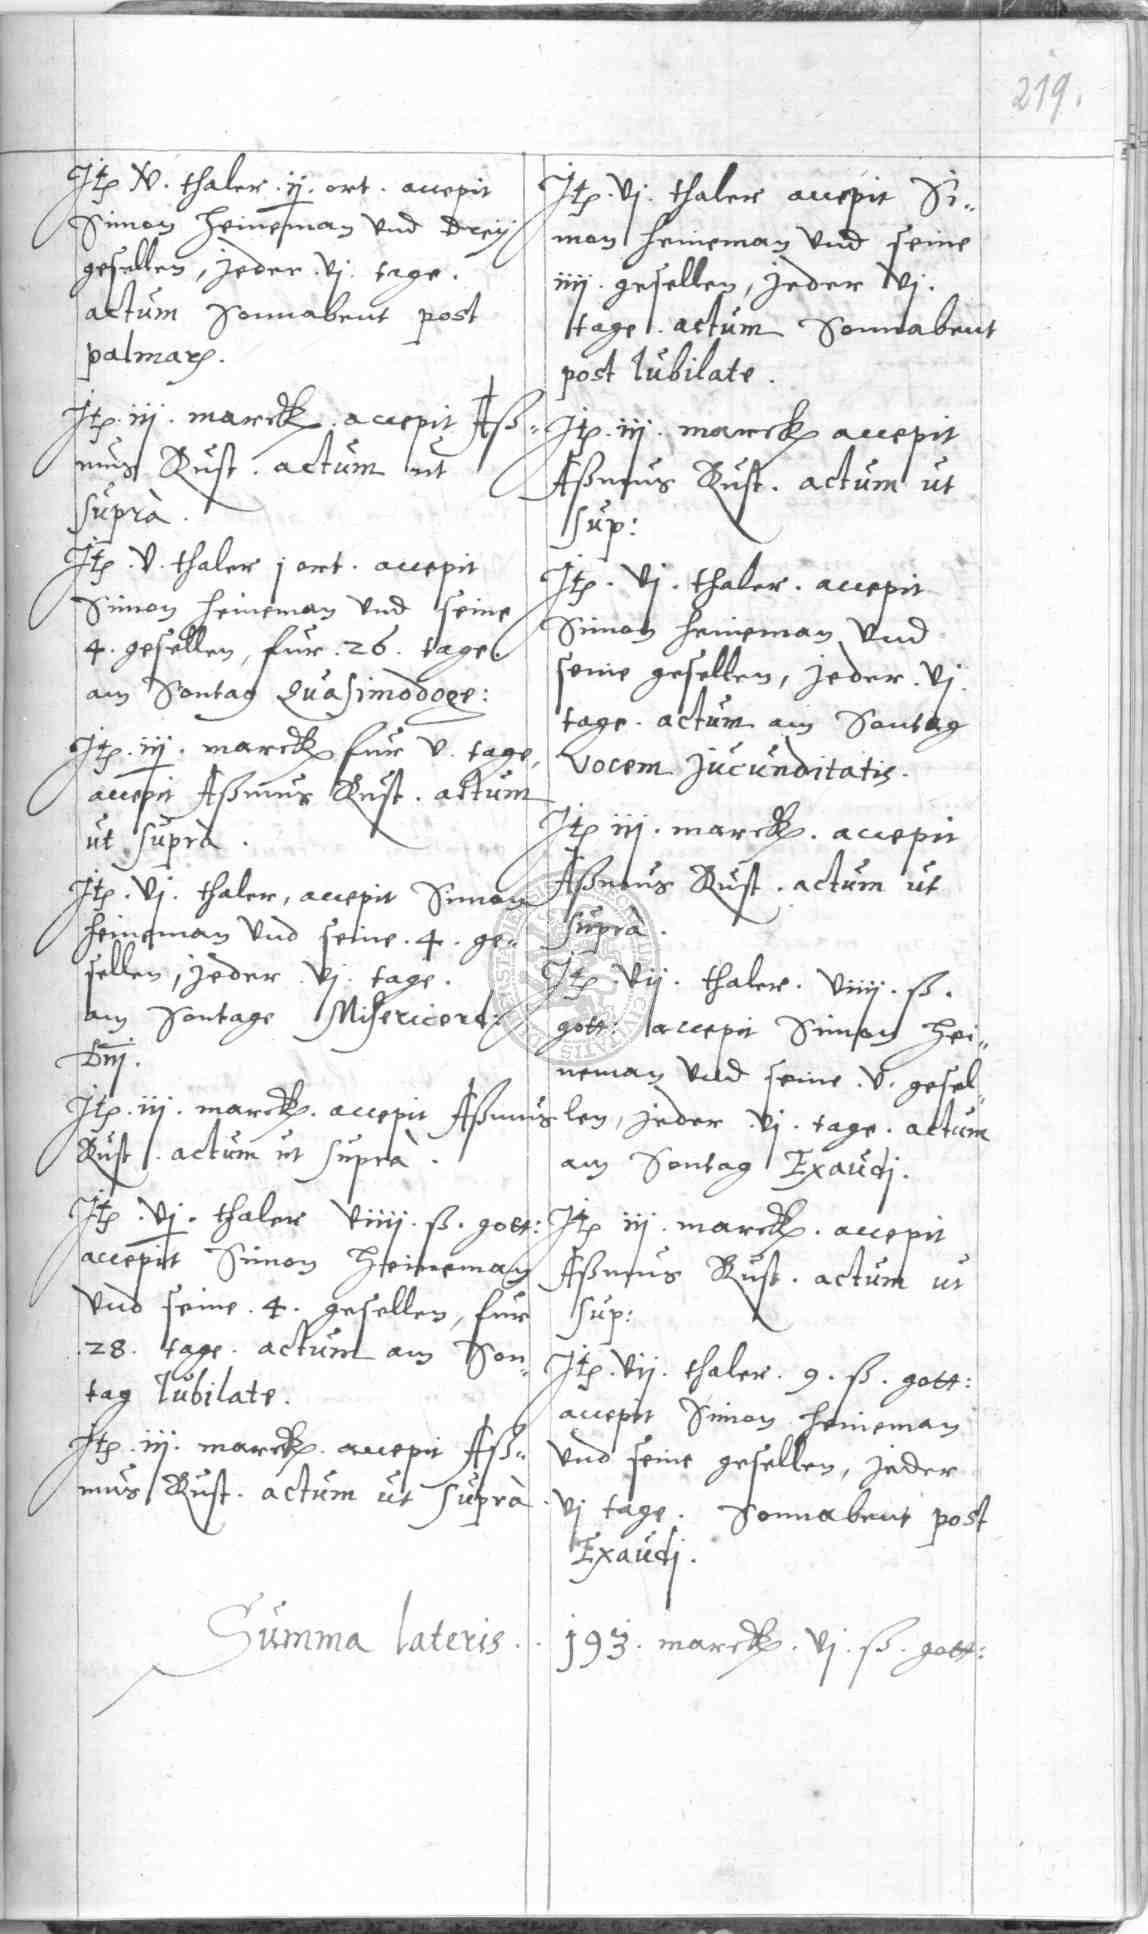 219.
Itē. V. thaler. ij. ort. accepit
Simon Heineman vnd Dreÿ
gesellen, jeder. vj. tage.
actum Sonnabent post
palmarū.
Itē. iij. marck. accepit Aß„
mus Rust. actum ut
suprà.
Itē. V. thaler j ort. accepit
Simon heineman vnd seine
4. gesellen, fur. 26. tage.
am Sontag Quasimodoge:
Itē. iij. marck fur V. tage,
accepit Aßmus Rust. actum
ut suprà.
Itē. vj. thaler, accepit Simon
heineman vnd seine. 4. ge„
sellen, jeder. vj. tage.
am Sontage Misericord:
Dnj.
Itē. iij. marck. accepit Aßmus
Rust. actum ut suprà.
Itē. vj. thaler viiij. ß. gott:
accepit Simon Heineman
vnd seine. 4. gesellen, fur
.28. tage. actum am Son„
tag Iubilate.
Itē. iij. marck. accepit Aß„
mus Rust. actum ut suprà
Itē. vj. thaler accepit Si„
mon heineman vnd seine
iiij. gesellen, jeder vj.
tage. actum Sonnabent
post Iubilate.
Itē. iij. marck accepit
Aßmus Rust. actum ut
sup:
Itē. vj. thaler. accepit
Simon heineman vnd
seine gesellen, jeder. vj.
tage. actum am Sontag
Vocem Jucunditatis.
Itē iij. marck. accepit
Aßmus Rust. actum ut
suprà.
Itē. vij. thaler. viiij. ß.
gott: accepit Simon Hei„
neman vnd seine. v. gesel„
len, jeder. vj. tage. actum
am Sontag Exaudj.
Itē iij. marck. accepit
Aßmus Rust. actum ut
sup:
Itē. vij. thaler. 9. ß. gott:
accepit Simon heineman
vnd seine gesellen, jeder
vj tage. Sonnabent post
Exaudj.
Summa lateris.. 193. marck. vj. ß. gott: